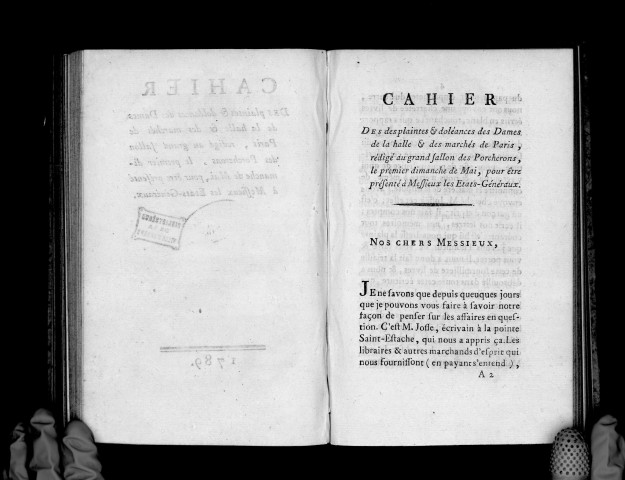 CAHIER
DES desplaintes & doléances des Dames
de la halle & des marchés de Paris,
rédigé au grand sallon des Porcherons,
le premier dimanche de Mai, pour être
présenté à Messieux les Etats-Généraux.
NOS CHERS MESSIEUX,
JE ne savons que depuis queuques jours
que je pouvons vous faire à savoir notre
façon de penser sur les affaires en ques-
tion. C'est M. Josse, écrivain à la pointe
Saint-Estache, qui nous a appris ça. Les
libraires & autres marchands d'esprit qui
nous fournissont (en payant s'entend),
A 2